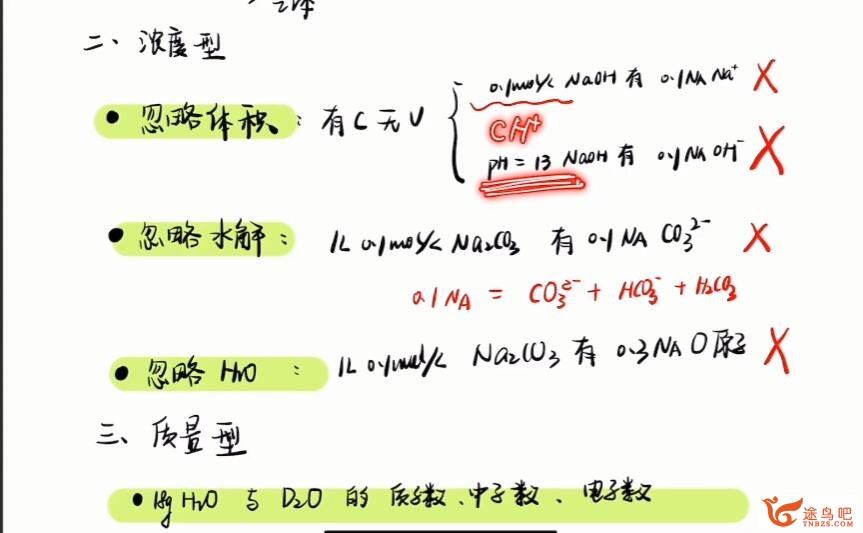 二、浓度型
0.1mol/L NaOH 有 0.1NA Na⁺ X
• 忽略体积：有C无V
CH⁺
pH = 13 NaOH 有 0.1NA OH⁻ X
• 忽略水解： 1L 0.1mol/L Na2CO3 有 0.1NA CO3²⁻ X
0.1NA = CO3²⁻ + HCO3⁻ + H2CO3
• 忽略 H2O ： 1L 0.1mol/L Na2CO3 有 0.3NA O原子 X
三、质量型
• 18g H2O 与 D2O 的 质子数、中子数、电子数
途鸟吧
TNBZS.COM